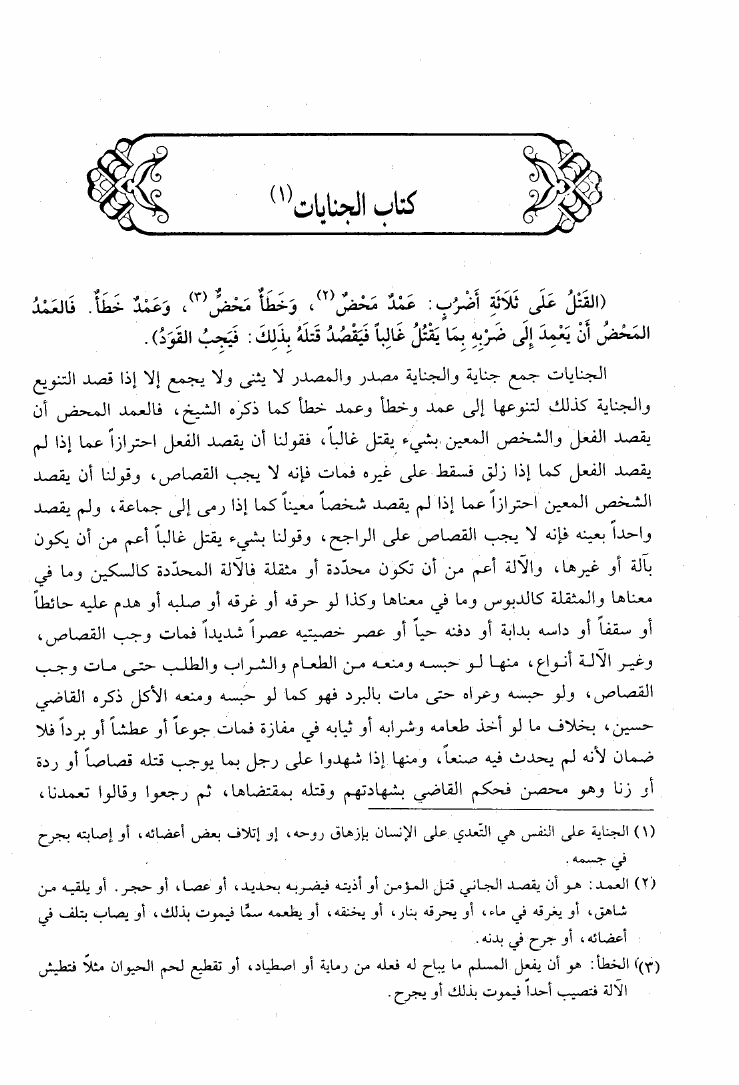 كتاب الجنايات(١)
(القَتْلُ عَلَى ثَلَاثَةِ أَضْرُبٍ: عَمْدٌ مَحْضٌ(٢)، وَخَطَأٌ مَحْضٌ(٣)، وَعَمْدٌ خَطَأٌ. فَالعَمْدُ
المَحْضُ أَنْ يَعْمِدَ إِلَى ضَرْبِهِ بِمَا يَقْتُلُ غَالِباً فَيَقْصُدُ قَتلَهُ بِذَلِكَ: فَيَجِبُ القَوَدُ).
الجنايات جمع جناية والجناية مصدر والمصدر لا يثنى ولا يجمع إلا إذا قصد التنويع
والجناية كذلك لتنوعها إلى عمد وخطأ وعمد خطأ كما ذكره الشيخ، فالعمد المحض أن
يقصد الفعل والشخص المعين بشيء يقتل غالباً، فقولنا أن يقصد الفعل احترازاً عما إذا لم
يقصد الفعل كما إذا زلق فسقط على غيره فمات فإنه لا يجب القصاص، وقولنا أن يقصد
الشخص المعين احترازاً عما إذا لم يقصد شخصاً معيناً كما إذا رمى إلى جماعة، ولم يقصد
واحداً بعينه فإنه لا يجب القصاص على الراجح، وقولنا بشيء يقتل غالباً أعم من أن يكون
بآلة أو غيرها، والآلة أعم من أن تكون محدّدة أو مثقلة فالآلة المحدّدة كالسكين وما في
معناها والمثقلة كالدبوس وما في معناها وكذا لو حرقه أو غرقه أو صلبه أو هدم عليه حائطاً
أو سقفاً أو داسه بدابة أو دفنه حياً أو عصر خصيتيه عصراً شديداً فمات وجب القصاص،
وغير الآلة أنواع، منها لو حبسه ومنعه من الطعام والشراب والطلب حتى مات وجب
القصاص، ولو حبسه وعراه حتى مات بالبرد فهو كما لو حبسه ومنعه الأكل ذكره القاضي
حسين، بخلاف ما لو أخذ طعامه وشرابه أو ثيابه في مفازة فمات جوعاً أو عطشاً أو برداً فلا
ضمان لأنه لم يحدث فيه صنعاً، ومنها إذا شهدوا على رجل بما يوجب قتله قصاصاً أو ردة
أو زنا وهو محصن فحكم القاضي بشهادتهم وقتله بمقتضاها، ثم رجعوا وقالوا تعمدنا،
(١) الجناية على النفس هي التّعدي على الإنسان بإزهاق روحه، إو إتلاف بعض أعضائه، أو إصابته بجرح
في جسمه.
(٢) العمد: هو أن يقصد الجاني قتل المؤمن أو أذيته فيضربه بحديد، أو عصا، أو حجر. أو يلقيه من
شاهق، أو يغرقه في ماء، أو يحرقه بنار، أو يخنقه، أو يطعمه سمًّا فيموت بذلك، أو يصاب بتلف في
أعضائه، أو جرح في بدنه.
(٣) الخطأ: هو أن يفعل المسلم ما يباح له فعله من رماية أو اصطياد، أو تقطيع لحم الحيوان مثلاً فتطيش
الآلة فتصيب أحداً فيموت بذلك أو يجرح.